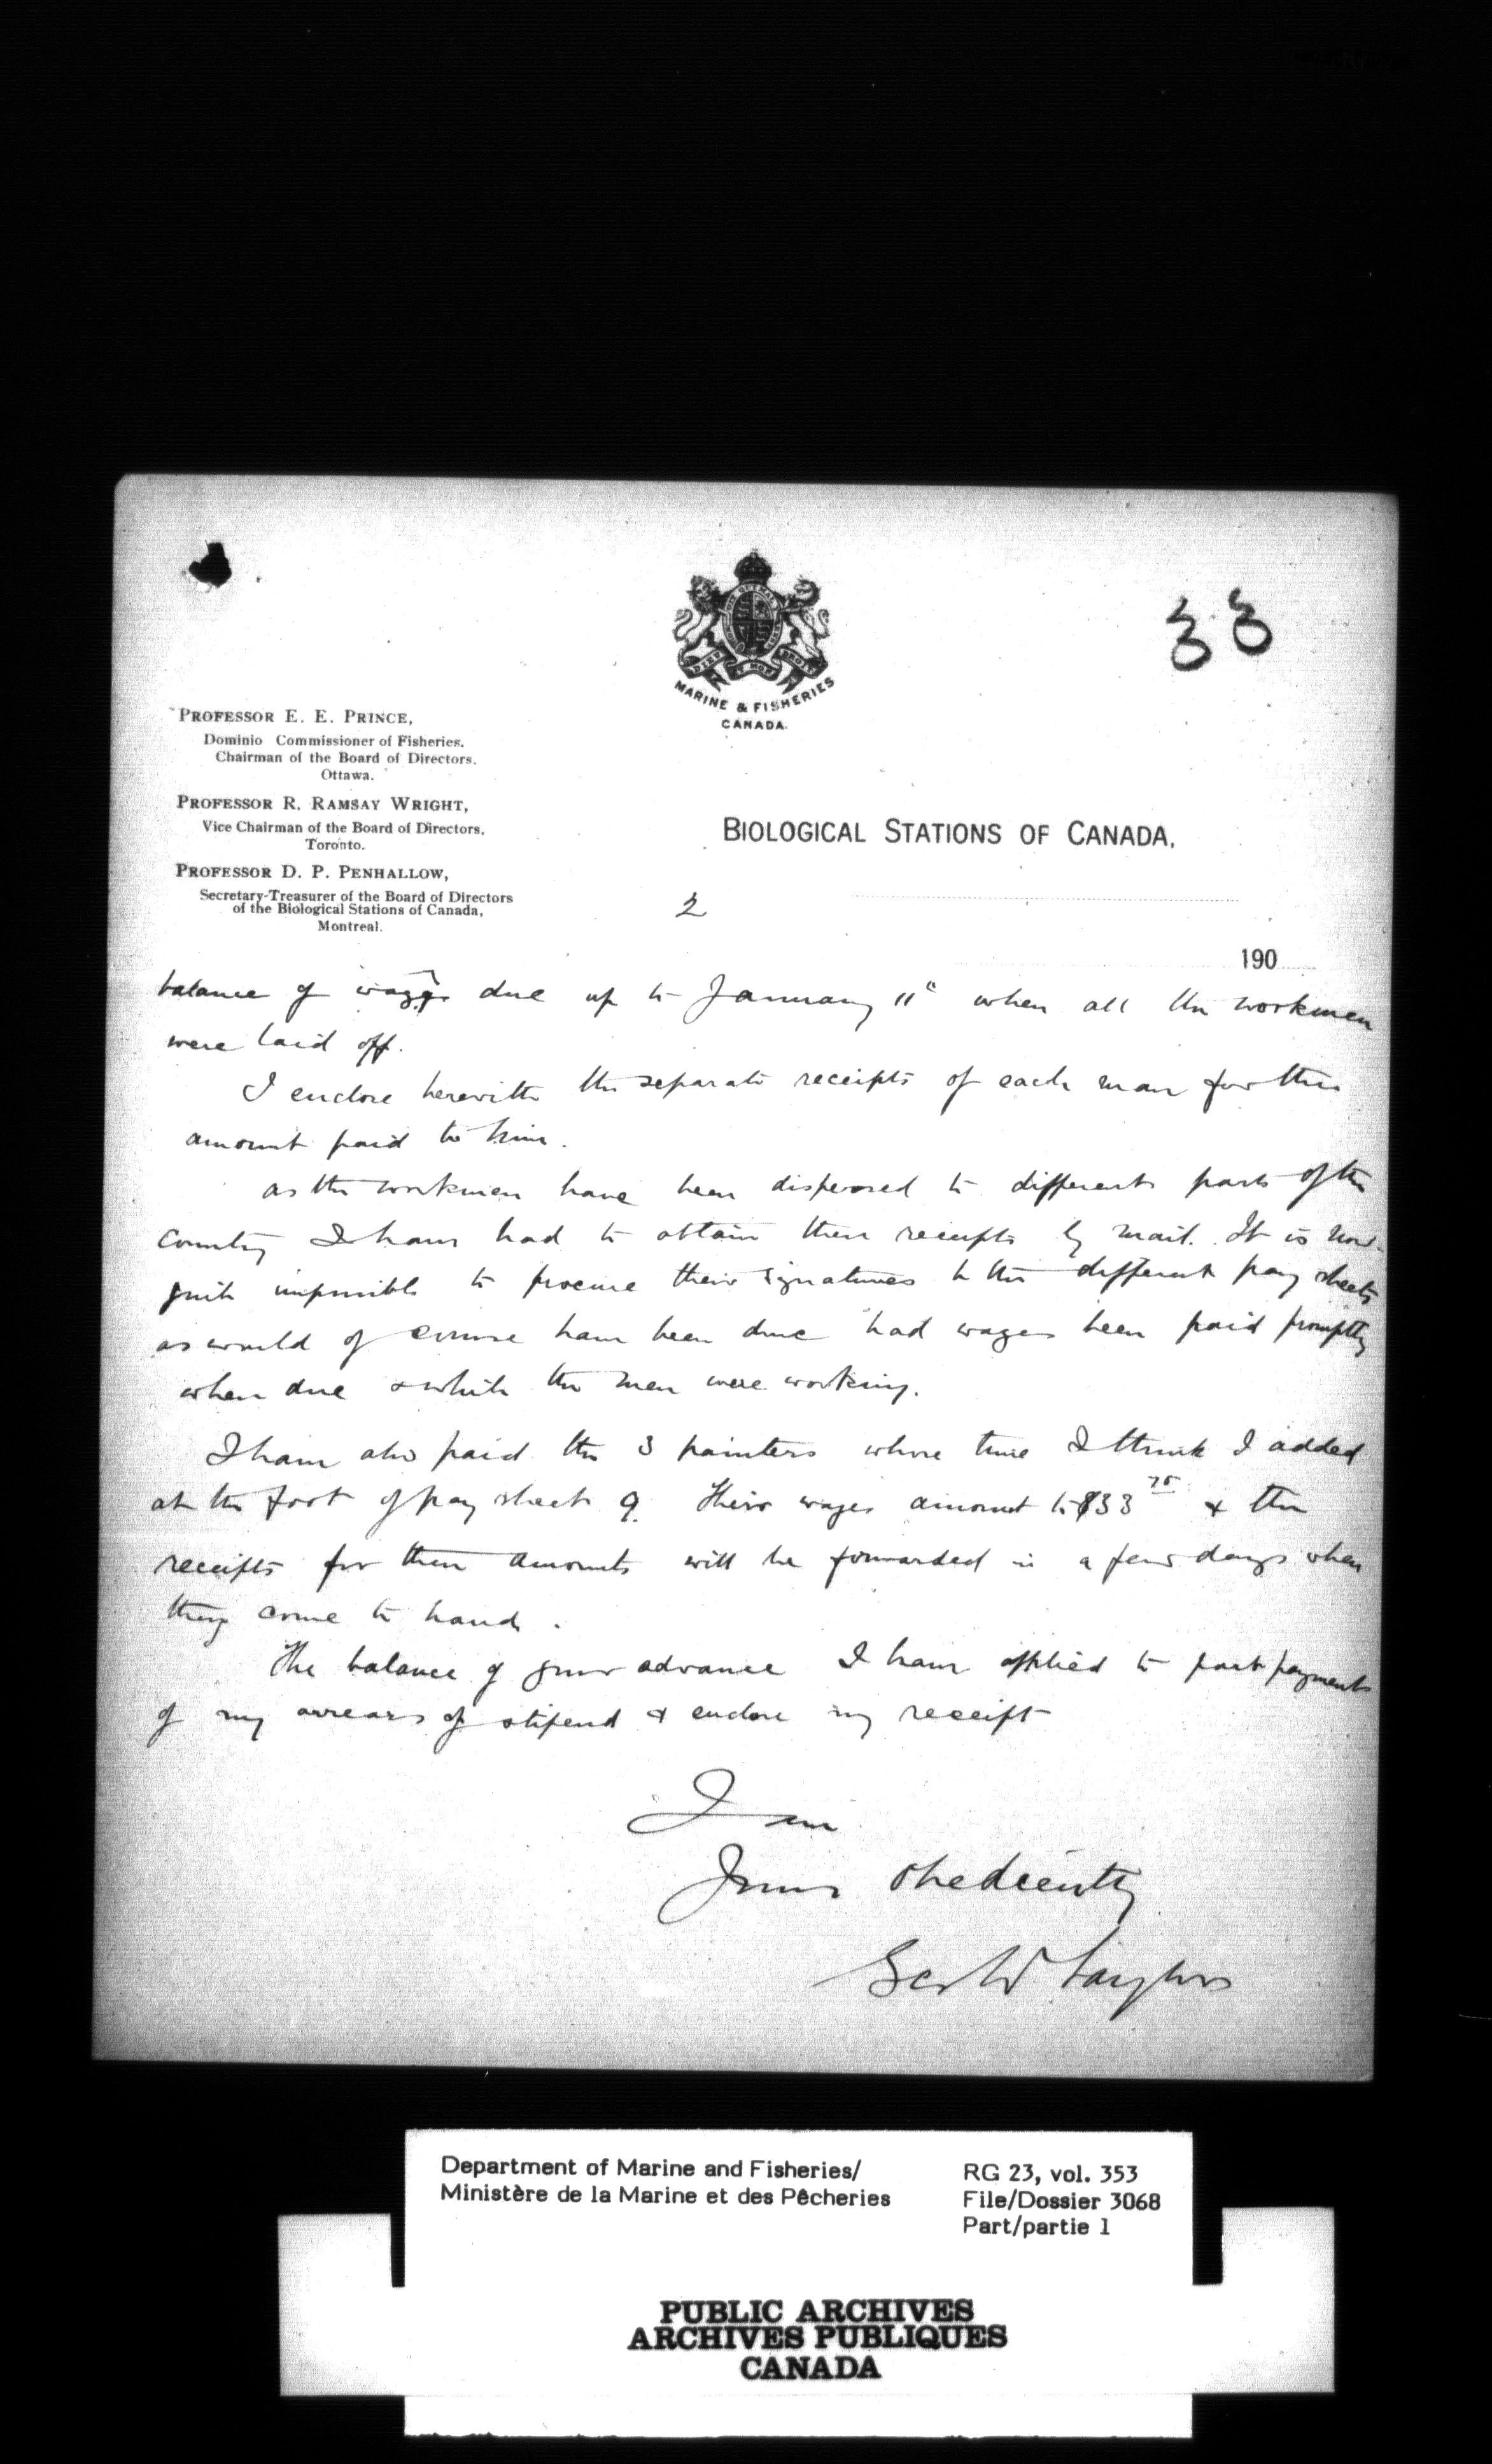 33
DIEU ET MON DROIT
MARINE & FISHERIES
CANADA.
PROFESSOR E. E. PRINCE,
Dominio Commissioner of Fisheries.
Chairman of the Board of Directors.
Ottawa.
PROFESSOR R. RAMSAY WRIGHT,
Vice Chairman of the Board of Directors,
Toronto.
PROFESSOR D. P. PENHALLOW,
Secretary-Treasurer of the Board of Directors
of the Biological Stations of Canada,
Montreal.
BIOLOGICAL STATIONS OF CANADA.
2
190
balance of wages due up to January 11" when all the workmen
were laid off.
I enclose herewith the separate receipts of each man for the
amount paid to him.
as the workmen have been dispersed to different parts of the
country I have had to obtain these receipts by mail. It is now
quite impossible to procure their signatures to the different pay sheets
as would of course have been done had wages been paid promptly
when due & while the men were working.
I have also paid the 3 painters whose time I think I added
at the foot of pay sheet 9. Their wages amount to $33 75 & the
receipts for these amounts will be forwarded in a few days when
they come to hand.
The balance of your advance I have applied to part payment
of my arrears of stipend & enclose my receipt
I am
Yours obediently
Geo W Taylor
Department of Marine and Fisheries/
Ministère de la Marine et des Pêcheries
RG 23, vol. 353
File/Dossier 3068
Part/partie 1
PUBLIC ARCHIVES
ARCHIVES PUBLIQUES
CANADA